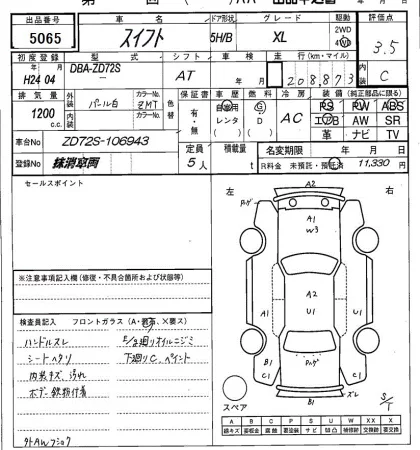 出品番号 車名 ドア形状 グレード 駆動 評価点
5065 スイフト 5H/B XL 2WD 4WD 3.5
初度登録 型式 シフト 車検 走行(km・マイル) 内装
H24 年 04 月 DBA-ZD72S AT 年 月 208,873 C
排気量 外装色 カラーNo. 色替 保証書 車歴 燃料 冷房 装備(純正部品に限る)
1200 c.c. パール白 ZMT 有・無 自家用 レンタ G D AC PS PW ABS
内装色 カラーNo. エアB AW SR
革 ナビ TV
車台No ZD72S-106943 定員 積載量 名変期限 年 月 日
登録No 抹消車両 5人 t R料金 未預託・預託済 11,330 円
セールスポイント 左 右
A2
A1
W3
※注意事項記入欄(修復・不具合箇所および状態等)
A2
A1 U1 U1
検査員記入 フロントガラス(A・飛石、×要ス)
ハンドルスレ
シートヘタリ 下廻りC、ペイント
内装キズ、汚れ
ボデー鉄粉付着
B1 B1
C1 C1
B1 スレ
スペア
S/T
A B C P S U W X XX
線キズ 腐蝕 要塗装 サビ 凹凸 補修跡 要交換 交換跡
外AWフショク